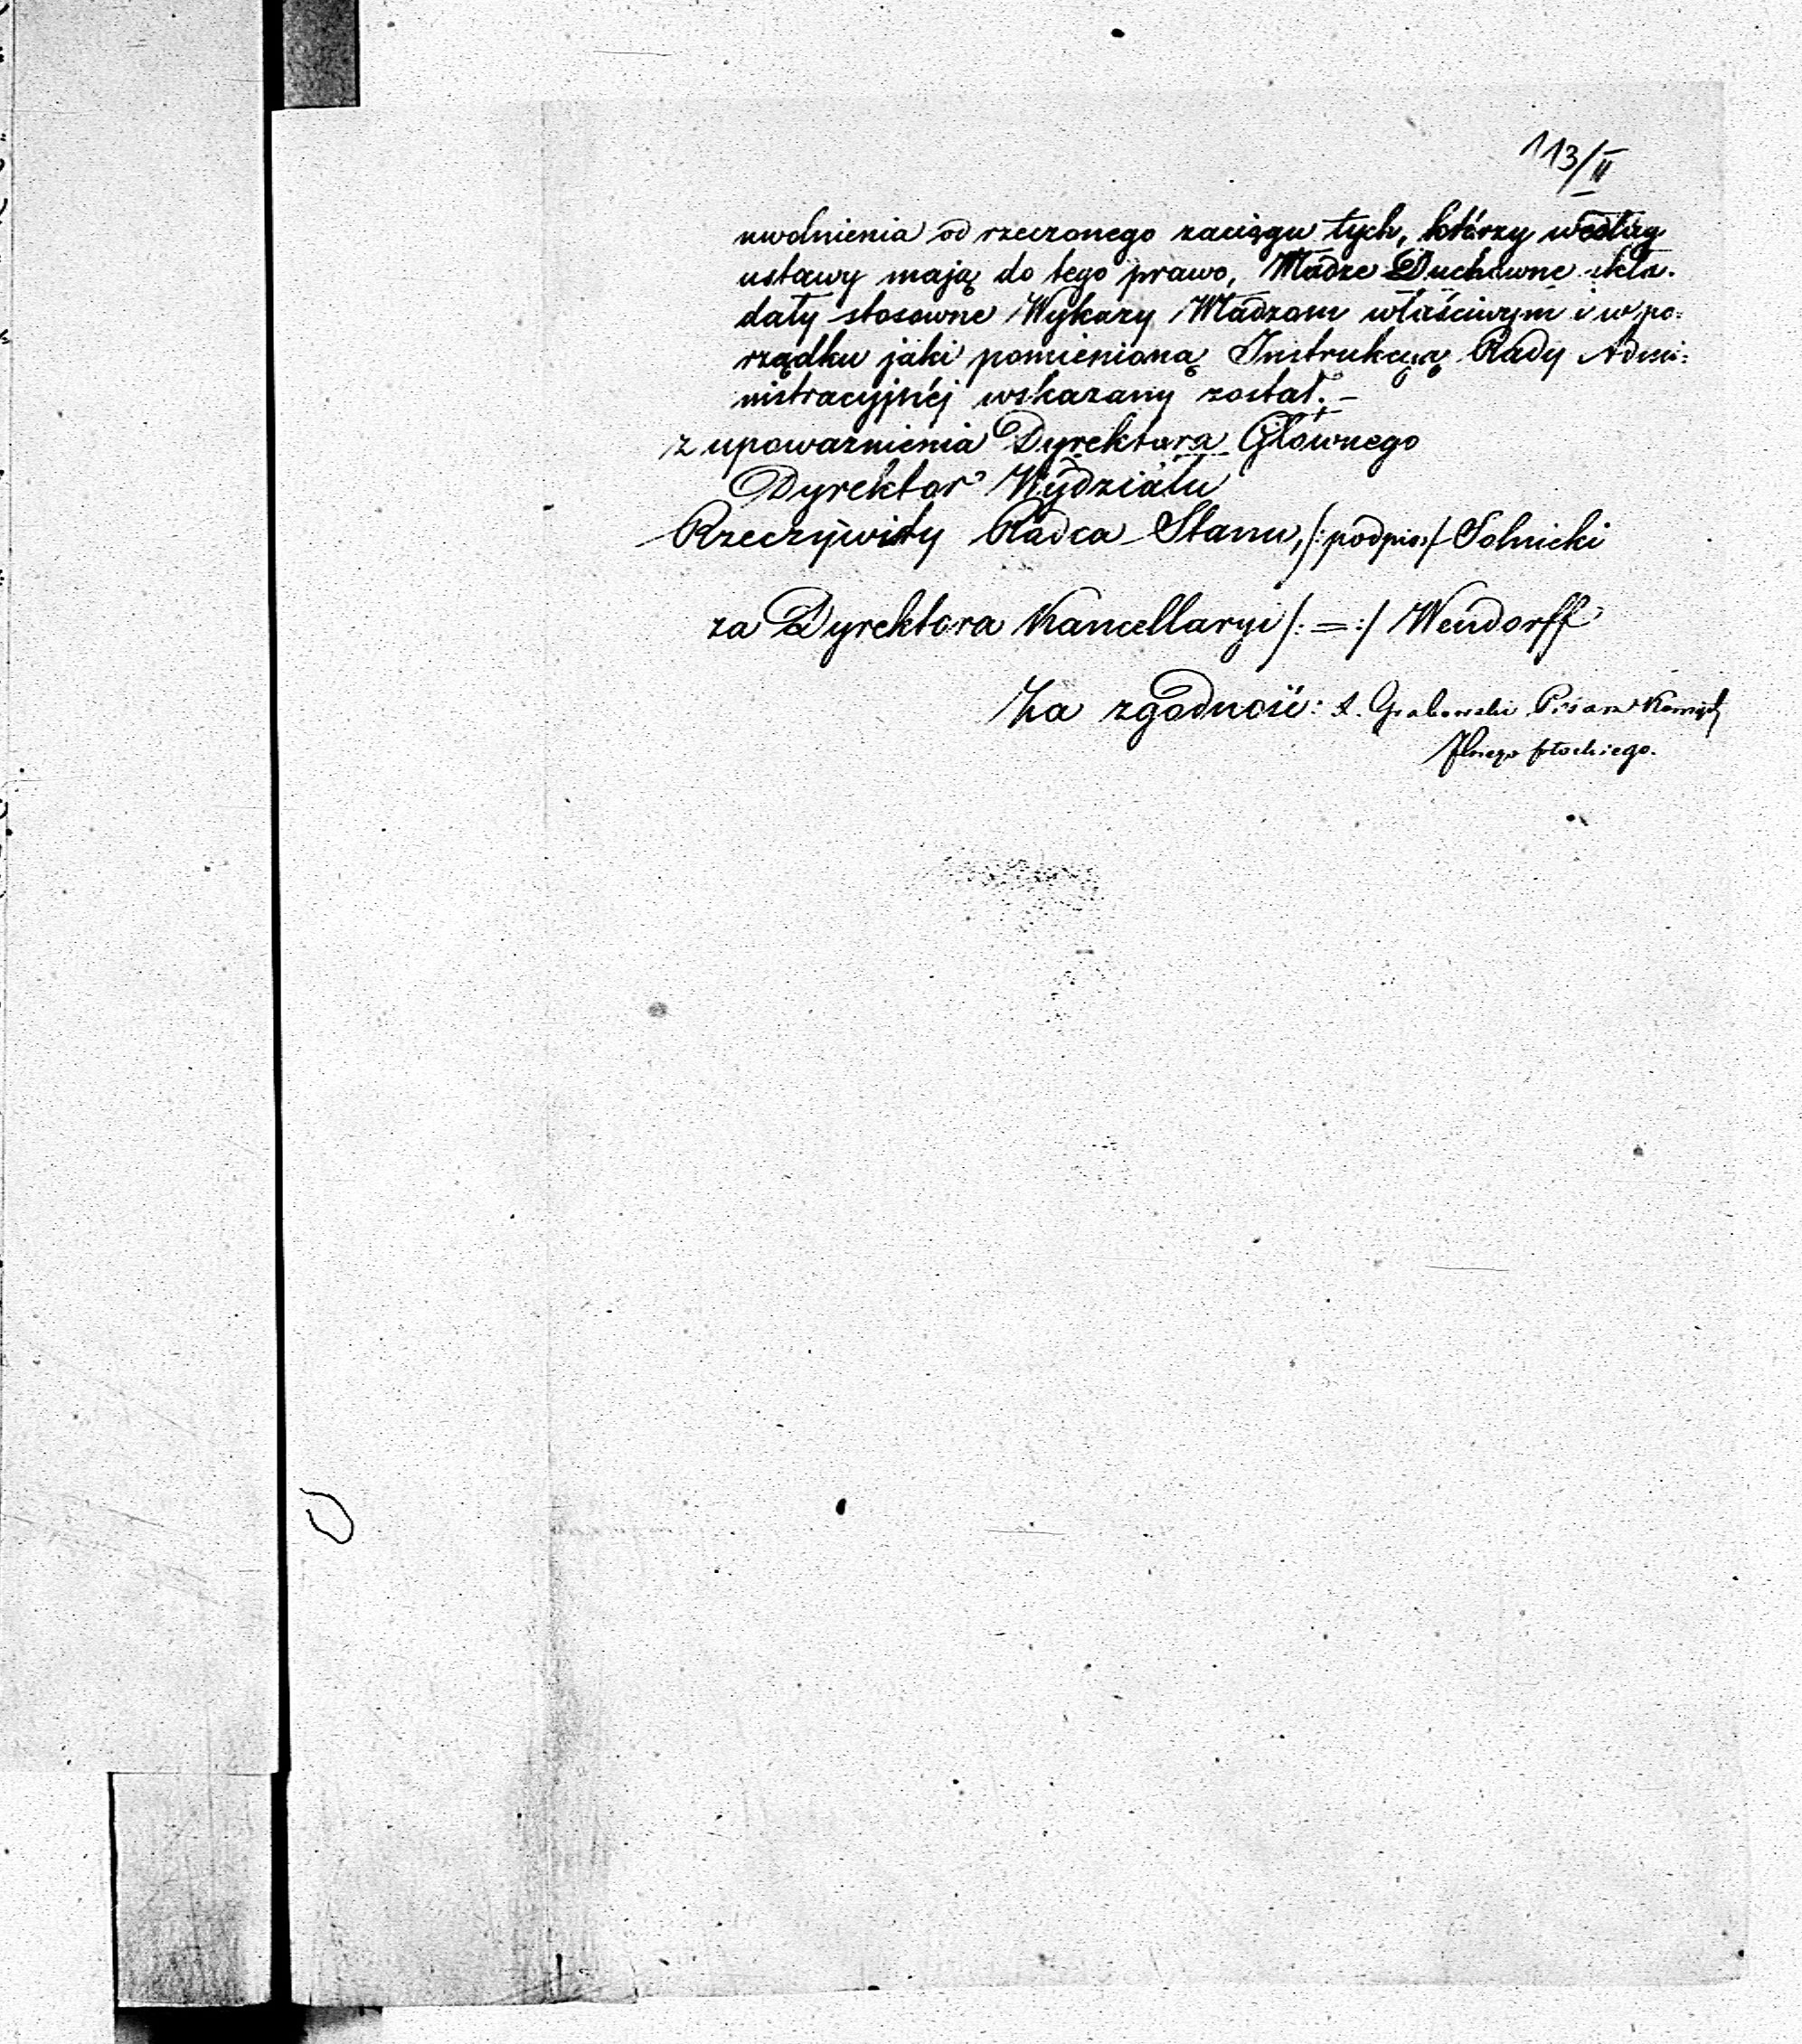 113/II
uwolnienia od rzeczonego zaciągu tych, którzy według
ustawy mają do tego prawo, Władze Duchowne skła-
dały stosowne Wykazy Władzom właściwym i w po-
rządku jaki pomienioną Instrukcyą Rady Admi-
nistracyjnéj wskazany został. –
z upoważnienia Dyrektora Głównego
Dyrektor Wydziału
Rzeczywisty Radca Stanu, /:podpis:/ Solnicki
za Dyrektora Kancellaryi /: = :/ Wendorff
Za zgodność: A. Grabowski Pisarz
płockiego.